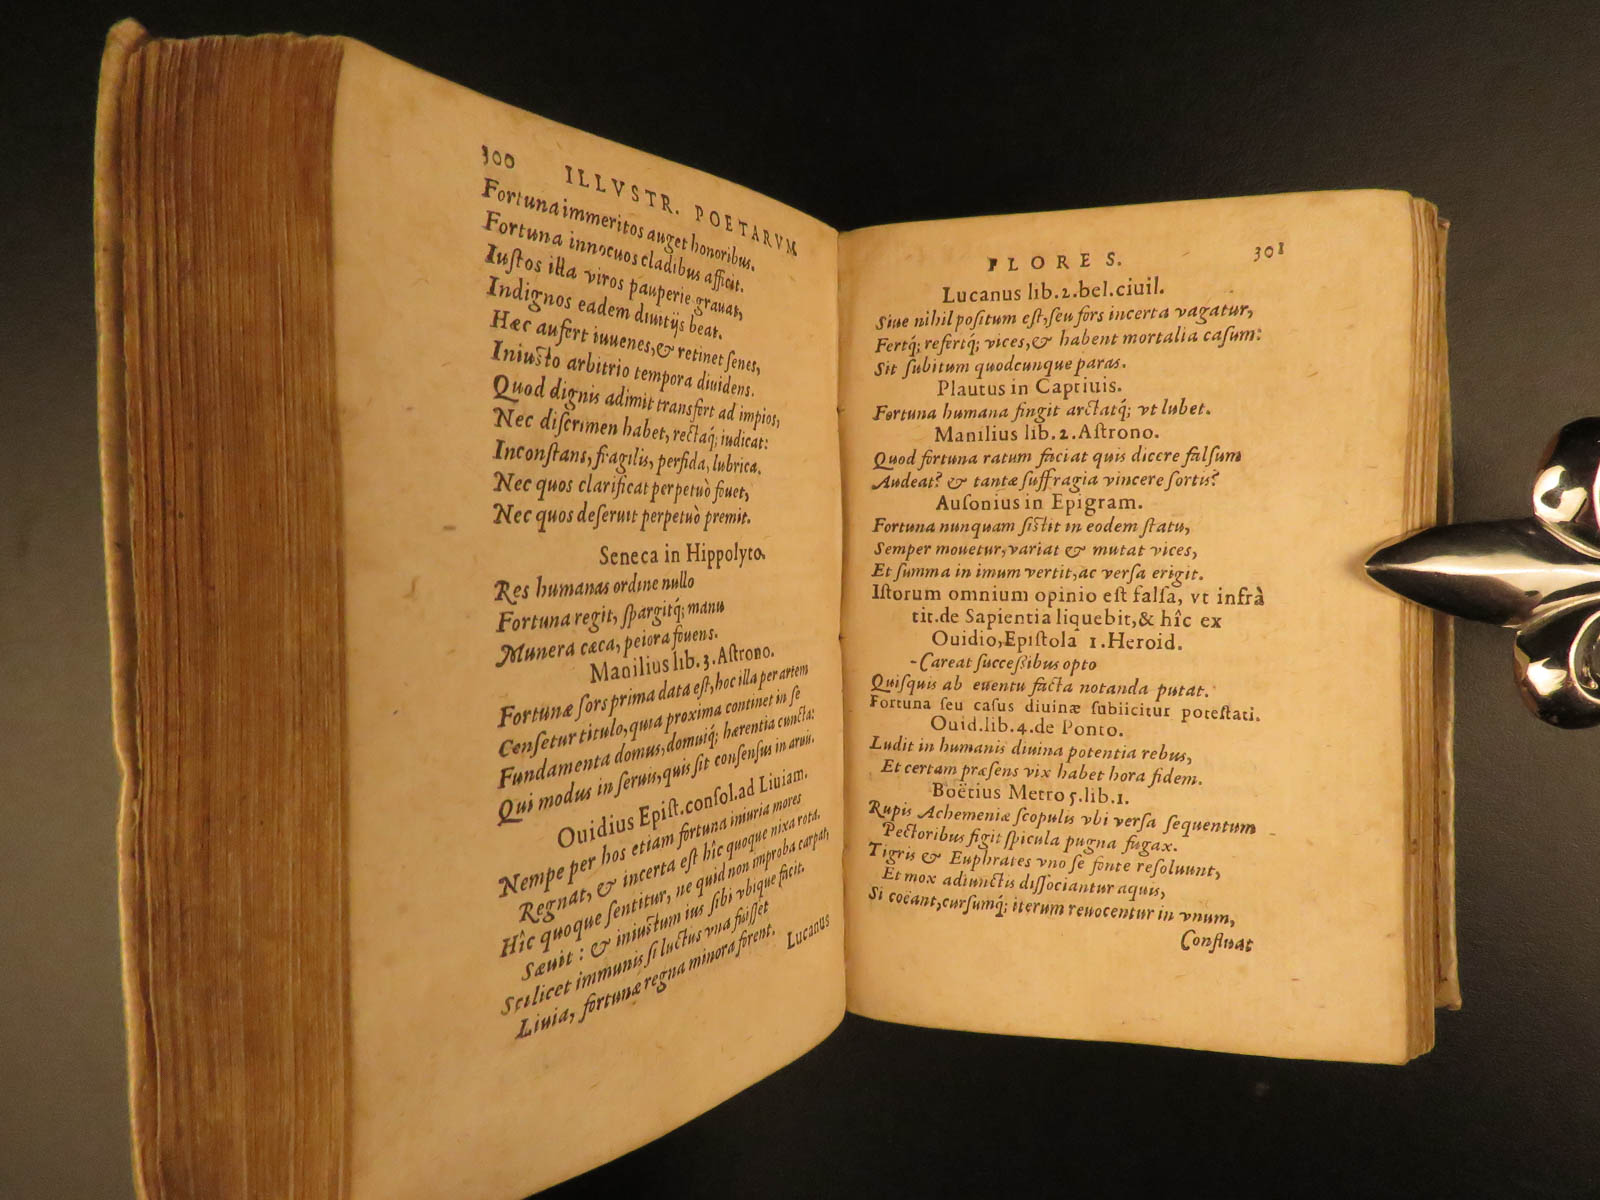 300 ILLVSTR. POETARVM
Fortuna immeritos auget honoribus.
Fortuna innocuos cladibus afficit.
Iuſtos illa viros pauperie grauat,
Indignos eadem diuitijs beat.
Hæc aufert iuuenes, & retinet ſenes,
Iniuſto arbitrio tempora diuidens.
Quod dignis adimit tranſfert ad impios,
Nec diſcrimen habet, rectaq́; iudicat:
Inconſtans, fragilis, perfida, lubrica.
Nec quos clarificat perpetuò fouet,
Nec quos deſeruit perpetuò premit.
Seneca in Hippolyto.
Res humanas ordine nullo
Fortuna regit, ſpargitq́; manu
Munera cæca, peiora fouens.
Manilius lib. 3. Aſtrono.
Fortunæ ſors prima data eſt, hoc illa per artem
Cenſetur titulo, quia proxima continet in ſe
Fundamenta domus, domuiq́; hærentia cuncta:
Qui modus in ſeruis, quis ſit conſenſus in aruis.
Ouidius Epiſt. conſol. ad Liuiam.
Nempe per hos etiam fortuna iniuria mores
Regnat, & incerta eſt hîc quoque nixa rota.
Hîc quoque ſentitur, ne quid non improba carpat,
Sæuit: & iniuſtum ius ſibi vbique facit.
Scilicet immunis ſi luctus vna fuiſſet
Liuia, fortunæ regna minora forent.
Lucanus
FLORES. 301
Lucanus lib. 2. bel. ciuil.
Siue nihil poſitum eſt, ſeu fors incerta vagatur,
Fertq́; refertq́; vices, & habent mortalia caſum:
Sit ſubitum quodcunque paras.
Plautus in Captiuis.
Fortuna humana fingit arctatq́; vt lubet.
Manilius lib. 2. Aſtrono.
Quod fortuna ratum faciat quis dicere falſum
Audeat? & tantæ ſuffragia vincere ſortis?
Auſonius in Epigram.
Fortuna nunquam ſiſtit in eodem ſtatu,
Semper mouetur, variat & mutat vices,
Et ſumma in imum vertit, ac verſa erigit.
Iſtorum omnium opinio eſt falſa, vt infrà
tit. de Sapientia liquebit, & hîc ex
Ouidio, Epiſtola 1. Heroid.
-Careat ſucceſſibus opto
Quiſquis ab euentu facta notanda putat.
Fortuna ſeu caſus diuinæ ſubiicitur poteſtati.
Ouid. lib. 4. de Ponto.
Ludit in humanis diuina potentia rebus,
Et certam præſens vix habet hora fidem.
Boëtius Metro 5. lib. 1.
Rupis Achemeniæ ſcopulis vbi verſa ſequentum
Pectoribus figit ſpicula pugna fugax.
Tigris & Euphrates vno ſe fonte reſoluunt,
Et mox adiunctis diſſociantur aquis,
Si coëant, curſumq́; iterum reuocentur in vnum,
Confluat